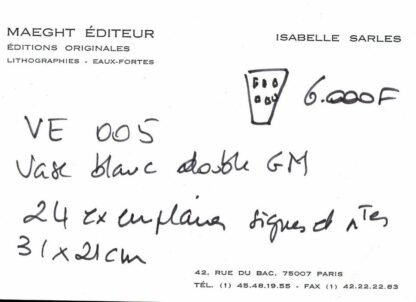 MAEGHT ÉDITEUR
ÉDITIONS ORIGINALES
LITHOGRAPHIES - EAUX-FORTES
ISABELLE SARLES
6.000F
VE 005
Vase blanc double GM
24 exemplaires signés et nTés
31x21cm
42, RUE DU BAC, 75007 PARIS
TÉL. (1) 45.48.19.55 - FAX (1) 42.22.22.83